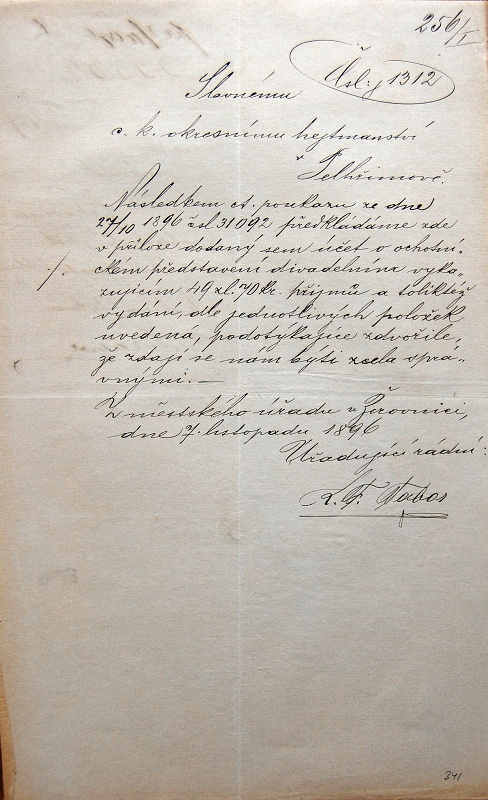 256/I
Čsl: j 1312
Slavnému
c. k. okresnímu hejtmanství
v Pelhřimově.
Následkem ct. poukazu ze dne
27/10 1896 čsl 31092 předkládáme zde
v příloze dodaný sem účet o ochotni-
./. ckém představení divadelním vyka-
zujícím 49 zl. 70 kr. příjmů a toliktéž
vydání, dle jednotlivých položek
uvedená, podotýkajíce zdvořile,
že zdají se nám býti zcela sprá-
vnými.—
Z městského úřadu v Žirovnici,
dne 7. listopadu 1896
Úřadující rádní:
341